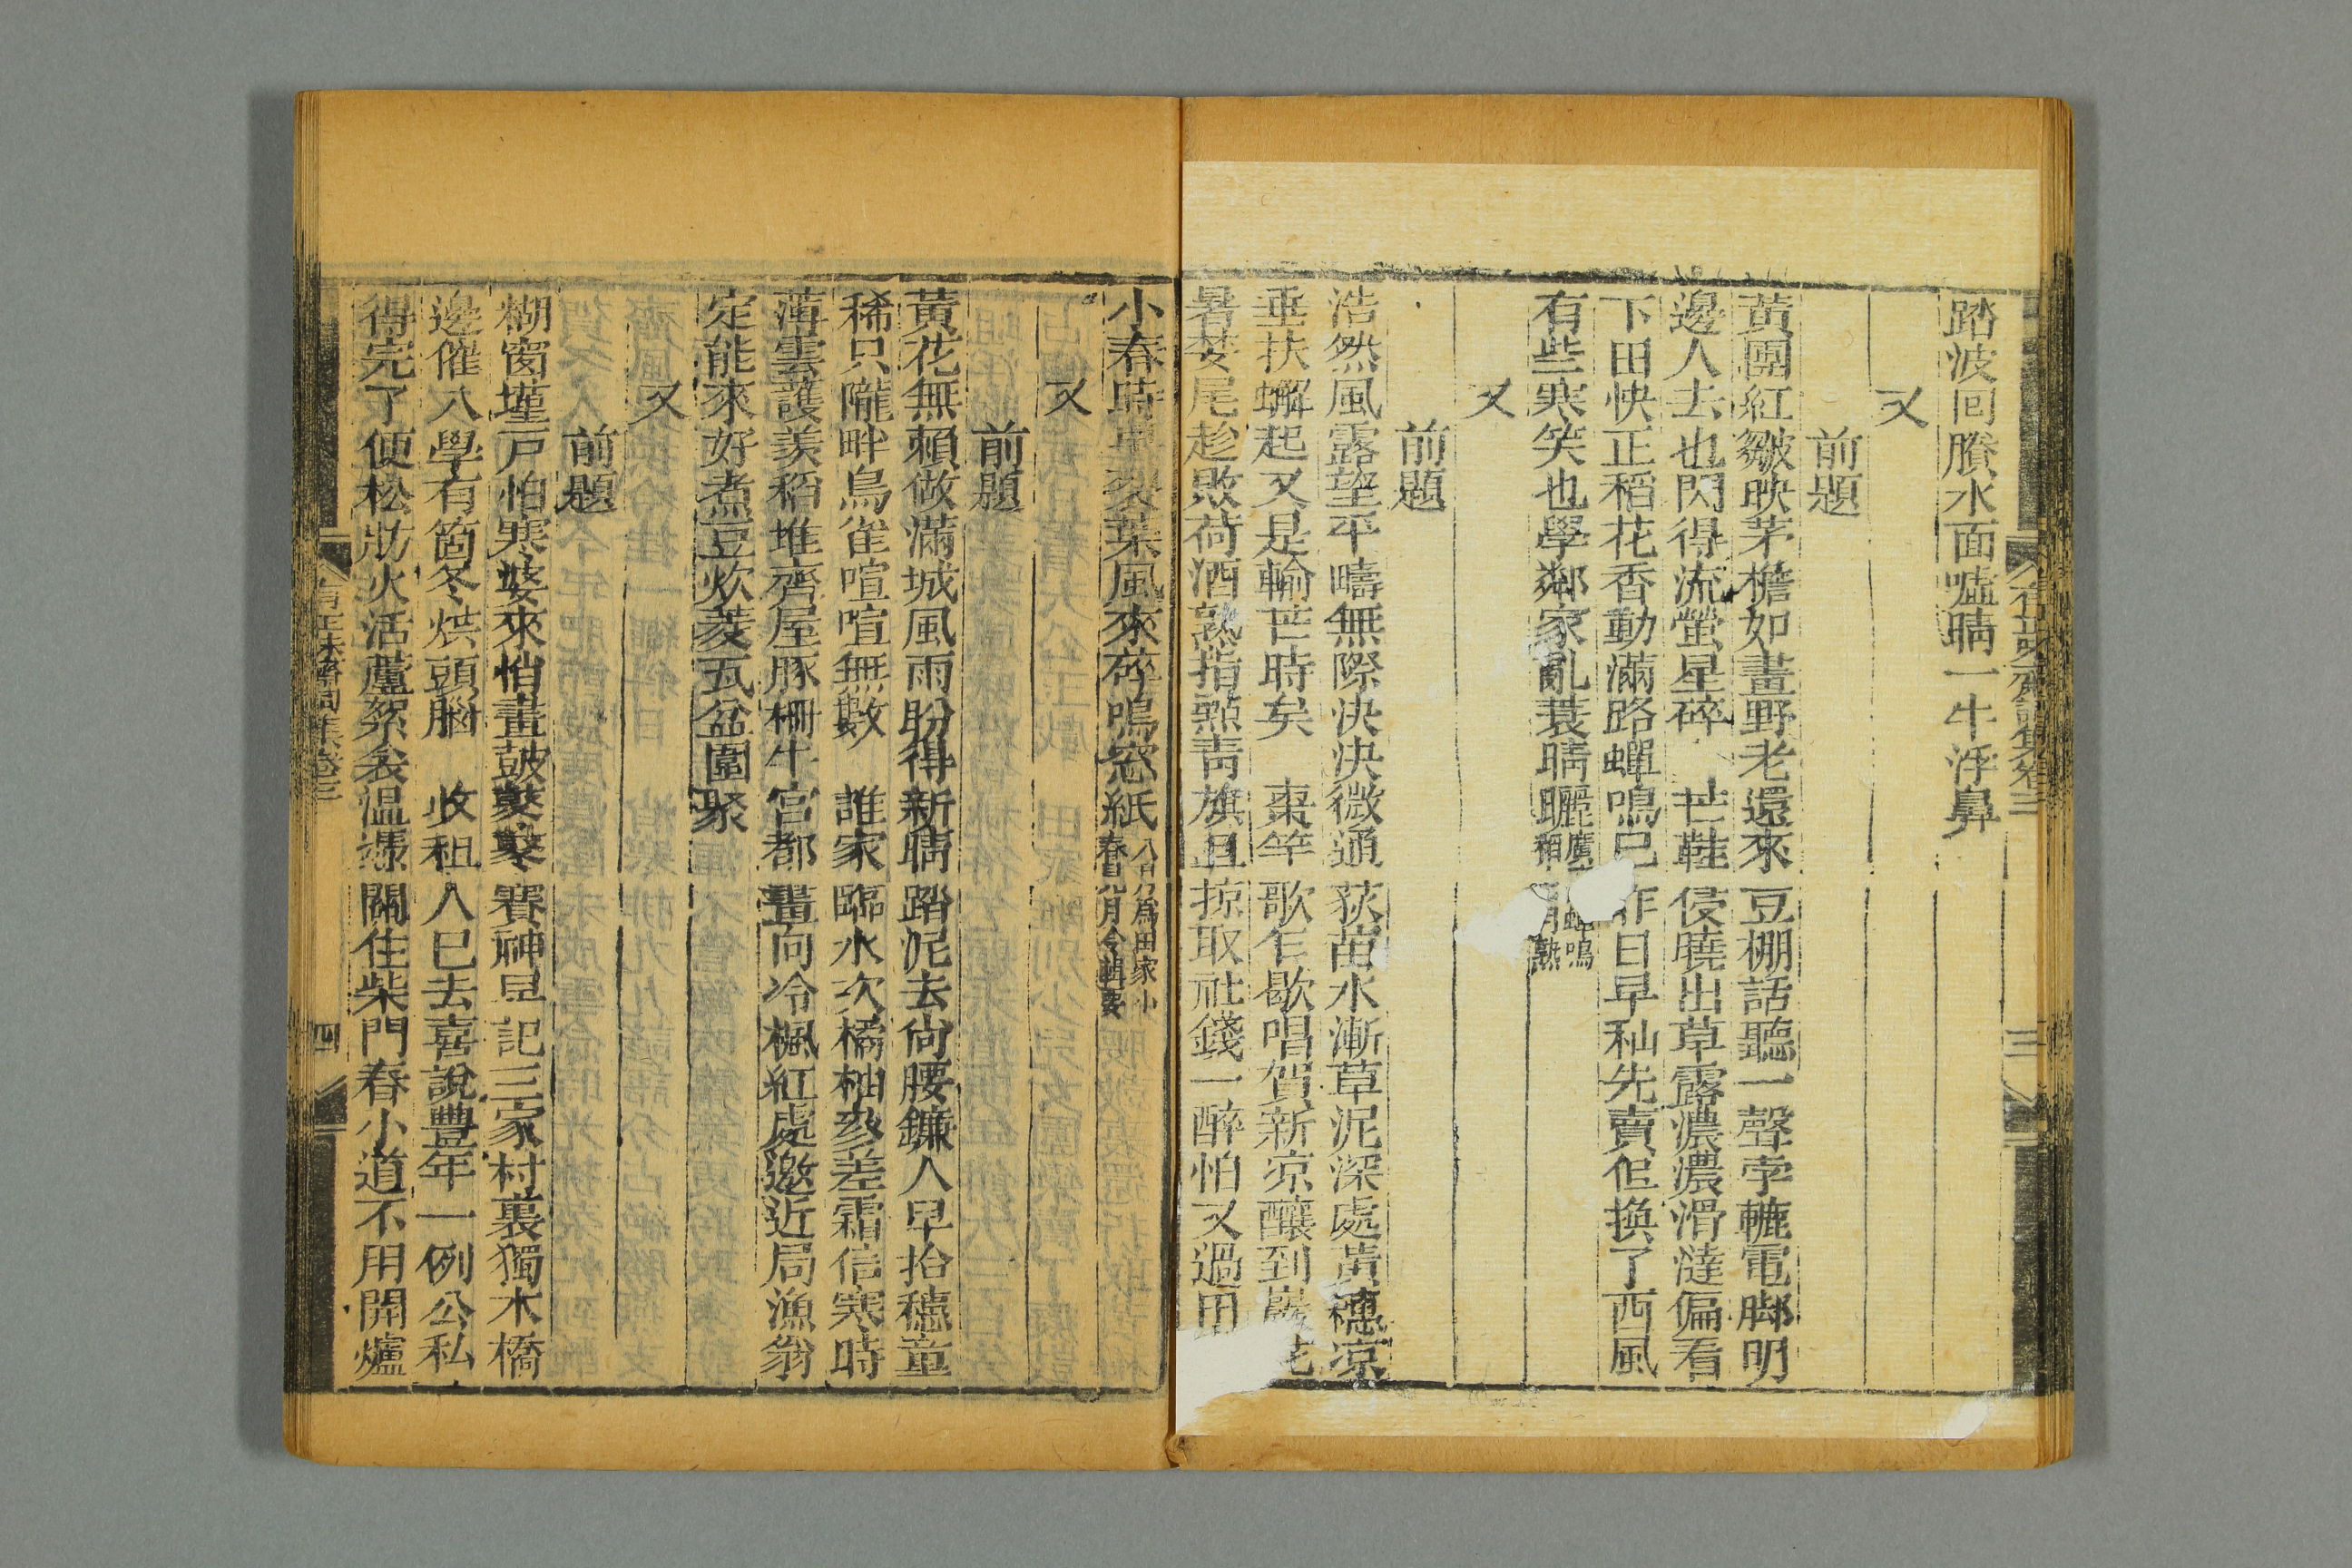 踏波回賸水面噓晴一牛浮鼻
又
前題
黃團紅皺映茅檐如畫野老還來豆棚話聽一聲孛轆電脚明
邊人去也閃得流螢星碎 芒鞋侵曉出草露濃濃滑澾偏看
下田快正稻花香動滿路蟬鳴已昨日早秈先賣但換了西風
有些寒笑也學鄰家亂蓑晴曬
又
前題
浩然風露望平疇無際決決微通荻苗水漸草泥深處黃穗凉
垂扶蠏起又是輸芒時矣 棗竿歌乍歇唱賀新凉釀到
暑婪尾趁敗荷酒熟指點靑旗且掠取社錢一醉怕又過田
小春時 裂葉風來碎鳴窓紙八月爲田家小春見月令輯要
又
前題
黃花無賴做滿城風雨盼得新晴踏泥去尙腰鐮人早拾穗童
稀只隴畔鳥雀喧喧無數 誰家臨水次橘柚參差霜信寒時
薄雲護羨稻堆齊屋豚柵牛宮都畫向冷楓紅處邀近局漁翁
定能來好煮豆炊菱瓦盆圍聚
又
前題
糊窗墐戸怕寒婆來悄畫鼓鼕鼕賽神早記三家村裏獨木橋
邊催入學有箇冬烘頭腦 收租人已去喜說豐年一例公私
得完了便松肪火活蘆絮衾溫還關住柴門春小道不用開爐
四
三